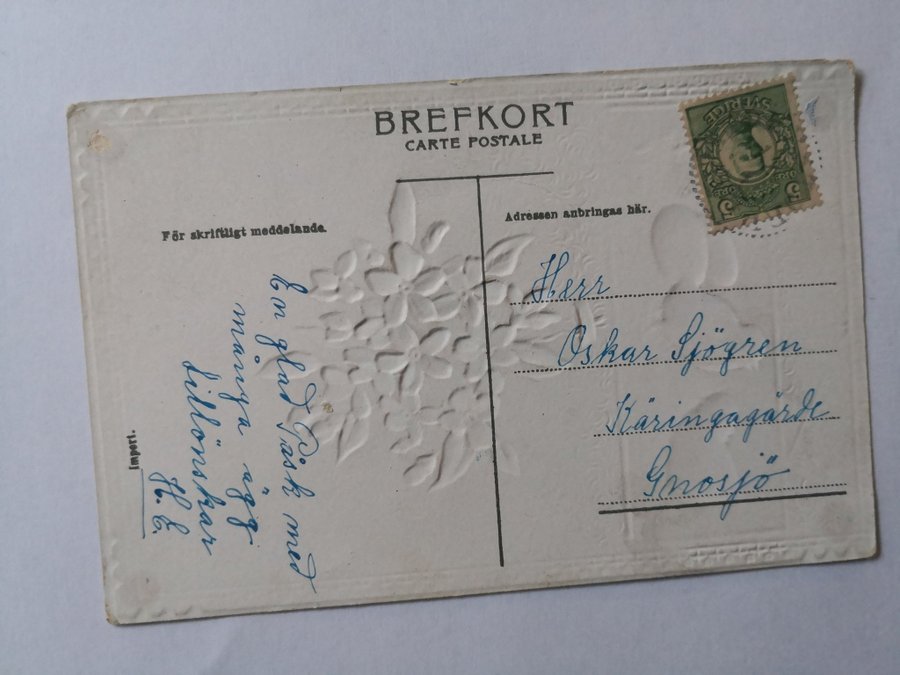 BREFKORT
CARTE POSTALE
För skriftligt meddelande.
Adressen anbringas här.
SVERIGE
5 ÖRE 5
En glad Påsk med
många ägg
tillönskar
H. E.
Herr
Oskar Sjögren
Käringagärde
Gnosjö
Import.